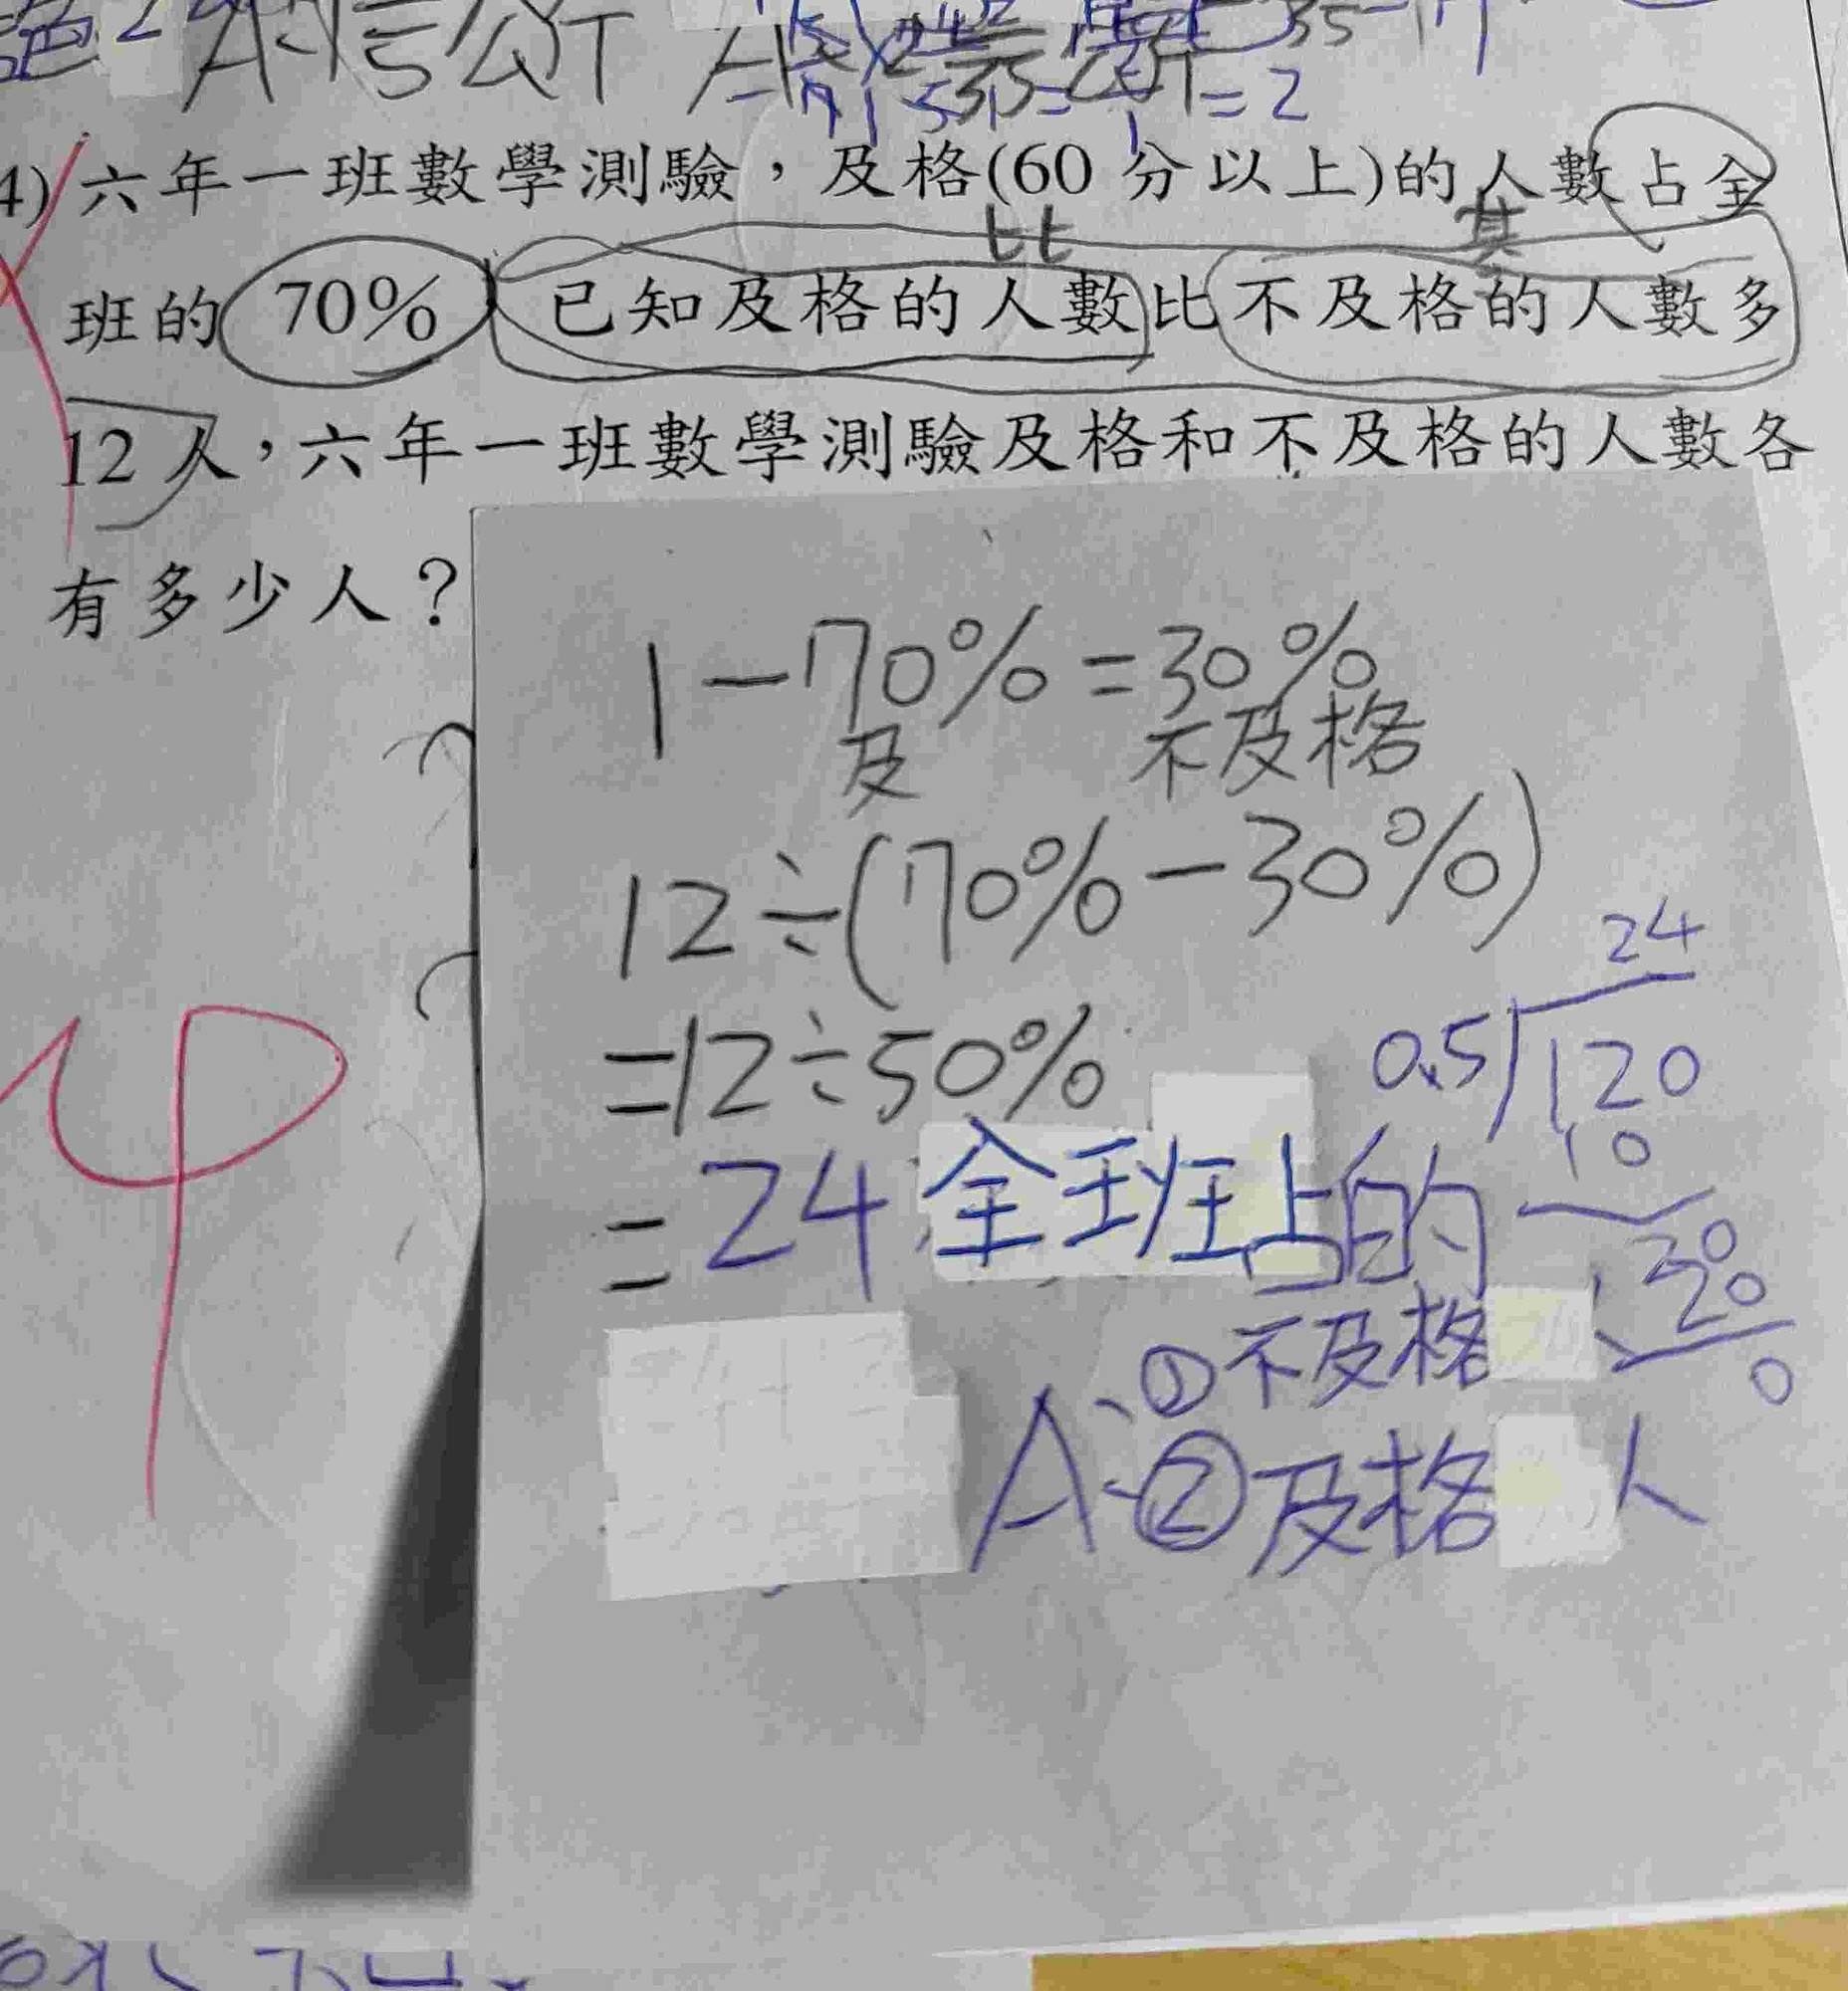 4) 六年一班數學測驗，及格(60 分以上)的人數占全
比 其
班的 70% 已知及格的人數比不及格的人數多
12 人，六年一班數學測驗及格和不及格的人數各
有多少人？
1－70%＝30%
及 不及格
12÷(70%－30%)
=12÷50%
=24 全班占的
24
0.5 120
10
20
20
0
①不及格
A:②及格 人